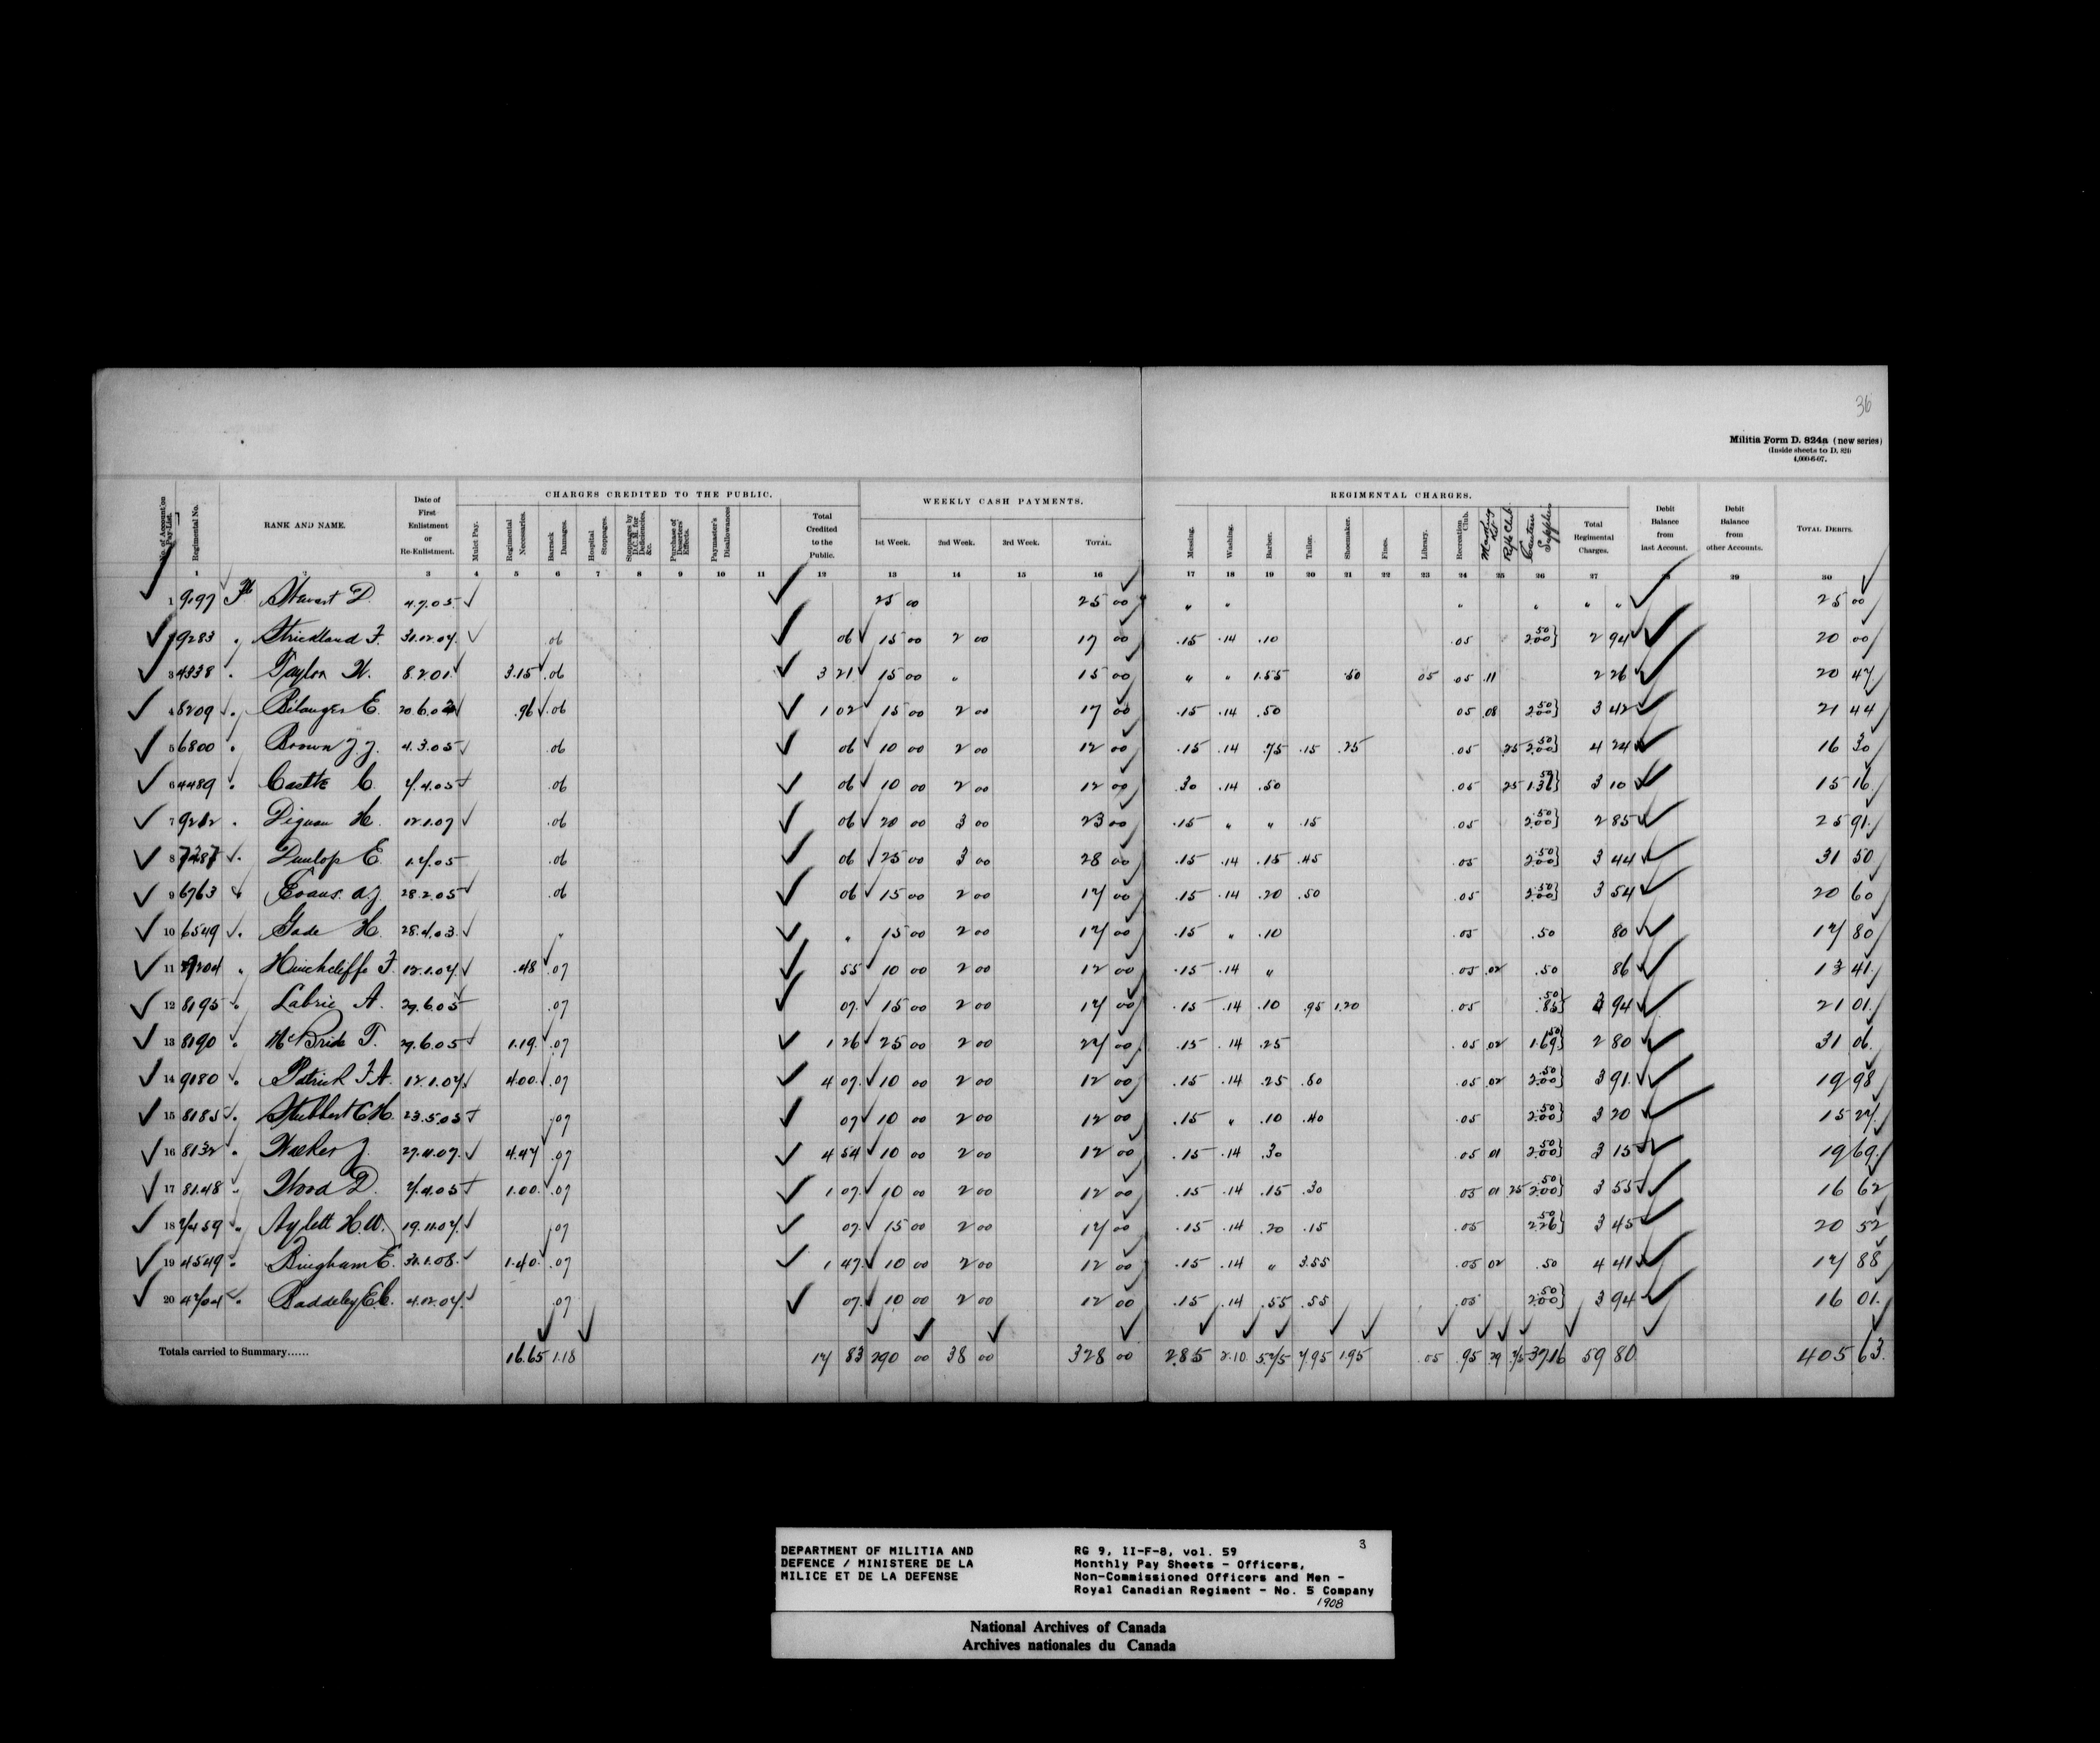 36
Militia Form D. 824a (new series)
(Inside sheets to D. 824)
4,000-6-07.
CHARGES CREDITED TO THE PUBLIC. WEEKLY CASH PAYMENTS. REGIMENTAL CHARGES.
No. of Account on Pay-List. Regimental No. RANK AND NAME. Date of First Enlistment or Re-Enlistment. Mulct Pay. Regimental Necessaries. Barrack Damages. Hospital Stoppages. Stoppages by D.C.M. for Deficiencies, &c. Purchase of Deserters' Effects. Paymaster's Disallowances Total Credited to the Public. 1st Week. 2nd Week. 3rd Week. TOTAL. Messing. Washing. Barber. Tailor. Shoemaker. Fines. Library. Recreation Club. Rifle Club. Canteen Supplies Total Regimental Charges. Debit Balance from last Account. Debit Balance from other Accounts. TOTAL DEBITS.
1 2 3 4 5 6 7 8 9 10 11 12 13 14 15 16 17 18 19 20 21 22 23 24 25 26 27 28 29 30
1 Stewart D. 4.7.05 25 00 25 00 " " " " " " 25 00
2 9283 " Strickland F. 31.12.07 .06 06 15 00 2 00 17 00 .15 .14 .10 .05 .50 2.00} 2 94 20 00
3 4338 " Taylor W. 8.2.01 3.15 .06 3 21 15 00 " 15 00 " " 1.55 .50 05 .05 .11 2 26 20 47
4 8209 " Bélanger E. .96 .06 1 02 15 00 2 00 17 00 .15 .14 .50 05 .08 .50 2.00} 3 42 21 44
5 6800 " Brown J.J. 4.3.05 .06 06 10 00 2 00 12 00 .15 .14 .75 .15 .25 .05 .25 .50 2.00} 4 24 16 30
6 4489 " Castle C. 7.4.05 .06 06 10 00 2 00 12 00 .30 .14 .50 .05 25 .50 1.36} 3 10 15 16
7 " Dignan H. 12.1.07 .06 06 20 00 3 00 23 00 .15 " " .15 .05 .50 2.00} 2 85 25 91
8 7287 " Dunlop E. 1.7.05 .06 06 25 00 3 00 28 00 .15 .14 .15 .45 .05 .50 2.00} 3 44 31 50
9 6763 " Evans A.J. 28.2.05 .06 06 15 00 2 00 17 00 .15 .14 .20 .50 .05 .50 2.00} 3 54 20 60
10 6549 " Gade H. 28.4.03 " " 15 00 2 00 17 00 .15 " .10 .05 .50 80 17 80
11 " Hinchcliffe F. 12.1.07 .48 .07 55 10 00 2 00 12 00 .15 .14 " .05 .02 .50 86 13 41
12 8195 " Labrie A. 29.6.05 .07 07 15 00 2 00 17 00 .15 .14 .10 .95 1.20 .05 .50 .85} 3 94 21 01
13 8190 " McBride T. 29.6.05 1.19 .07 1 26 25 00 2 00 27 00 .15 .14 .25 .05 02 .50 1.69} 2 80 31 06
14 9180 " Patrick F.A. 12.1.07 4.00 .07 4 07 10 00 2 00 12 00 .15 .14 .25 .80 .05 02 .50 2.00} 3 91 19 98
15 8185 " Stubbert C.H. 23.5.05 .07 07 10 00 2 00 12 00 .15 " .10 .40 .05 .50 2.00} 3 20 15 27
16 8132 " Walker J. 27.11.07 4.47 .07 4 54 10 00 2 00 12 00 .15 .14 .30 .05 01 .50 2.00} 3 15 19 69
17 8148 " Wood D. 7.4.05 1.00 .07 1 07 10 00 2 00 12 00 .15 .14 .15 .30 .05 01 25 .50 2.00} 3 55 16 62
18 7459 " Aylett H.W. 19.11.07 .07 07 15 00 2 00 17 00 .15 .14 .20 .15 .05 .50 2.26} 3 45 20 52
19 4549 " Bingham E. 31.1.08 1.40 .07 1 47 10 00 2 00 12 00 .15 .14 " 3.55 .05 02 .50 4 41 17 88
20 4704 " Baddeley E.C. 4.12.07 .07 07 10 00 2 00 12 00 .15 .14 .55 .55 .05 .50 2.00} 3 94 16 01
Totals carried to Summary...... 16.65 1.18 17 83 290 00 38 00 328 00 2.85 2.10 5.75 7.95 1.95 .05 .95 .29 .75 37.16 59 80 405 63
DEPARTMENT OF MILITIA AND
DEFENCE / MINISTERE DE LA
MILICE ET DE LA DEFENSE
RG 9, II-F-8, vol. 59
Monthly Pay Sheets - Officers,
Non-Commissioned Officers and Men -
Royal Canadian Regiment - No. 5 Company
1908
3
National Archives of Canada
Archives nationales du Canada